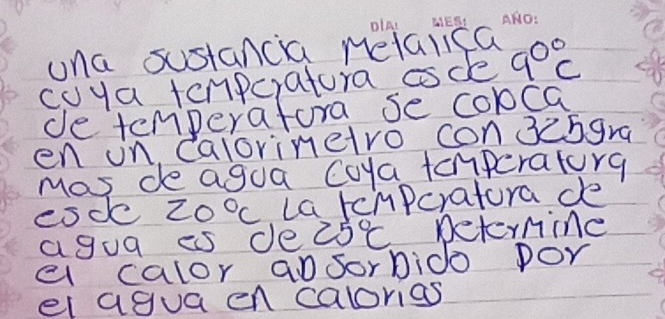 DIA: MES: AÑO:
una sustancia Metalisa
cuya temperatura es de 90°c
de temperatura se coloca
en un calorimetro con 325gra
mas de agua cuya temperatura
es de 20°c la temperatura de
agua es de 25°c Determine
el calor absorbido por
el agua en calorias